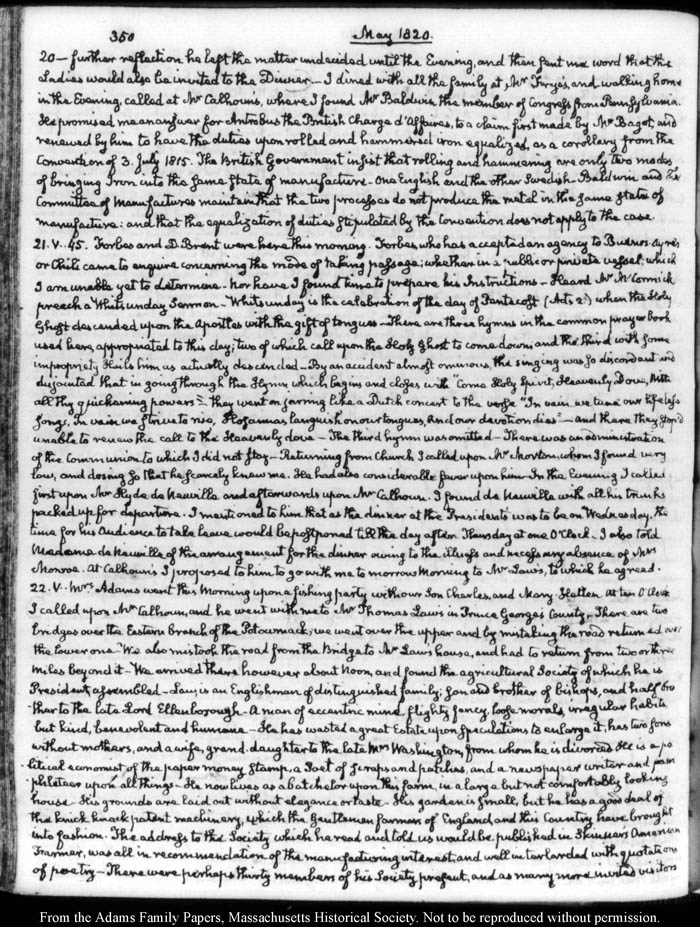 350 May 1820.
20 — further reflection he left the matter undecided until the Evening, and then sent me word that the
Ladies would also be invited to the Dinner. — I dined with all the family at Mr Frye's, and walking home
in the Evening, called at Mr Calhoun's, where I found Mr Baldwin, the member of Congress from Pennsylvania.
He promised me an answer for Antrobus the British Chargé d'Affaires, to a claim first made by Mr Bagot, and
renewed by him to have the duties upon rolled and hammered iron equalized, as a corollary from the
Convention of 3. July 1815. The British Government insist that rolling and hammering are only two modes
of bringing Iron into the same state of manufacture — One English and the other Swedish — Baldwin and the
Committee of Manufactures maintain that the two processes do not produce the metal in the same state of
manufacture: and that the equalization of duties stipulated by the Convention does not apply to the case.
21. V. 45. Forbes and D. Brent were here this morning. Forbes who has accepted an agency to Buenos-Ayres
or Chili came to enquire concerning the mode of taking passage; whether in a public or private vessel; which
I am unable yet to determine. nor have I found time to prepare his Instructions — Heard Mr McCormick
preach a Whitsunday Sermon — Whitsunday is the celebration of the day of Pentecost (Acts 2.) when the Holy
Ghost descended upon the Apostles with the gift of tongues — There are three hymns in the common prayer book
used here, appropriated to this day; two of which call upon the Holy Ghost to come down, and the third with some
impropriety Hails him as actually descended — By an accident almost ominous, the singing was so discordant and
disjointed that in going through the Hymn, which begins and closes with "Come Holy Spirit, Heavenly Dove, With
all thy quickening powers" — they went on jarring like a Dutch concert to the verse "In vain we tune our lifeless
songs, In vain we strive to rise, Hosannas languish on our tongues, And our devotion dies" — and there they stop'd
unable to renew the call to the Heavenly dove — The third hymn was omitted — There was an administration
of the Communion to which I did not stay — Returning from Church I called upon Mr Morton, whom I found very
low, and dosing so that he scarcely knew me. He had also considerable fever upon him — In the Evening I called
first upon Mr Hyde de Neuville, and afterwards upon Mr Calhoun. I found de Neuville with all his trunks
packed up for departure. I mentioned to him that as the dinner at the President's was to be on Wednesday, the
time for his Audience to take leave would be postponed till the day after Thursday at one O'Clock. I also told
Madame de Neuville of the arrangement for the dinner owing to the illness and necessary absence of Mrs
Monroe. At Calhoun's I proposed to him to go with me to morrow Morning to Mr Law's, to which he agreed.
22. V. Mrs Adams went this Morning upon a fishing party with our Son Charles, and Mary Hellen. At ten O'Clock
I called upon Mr Calhoun, and he went with me to Mr Thomas Law's in Prince George's County. There are two
bridges over the Eastern branch of the Potowmack; we went over the upper and by mistaking the road returned over
the lower one. We also mistook the road from the Bridge to Mr Law's house, and had to return from two or three
miles beyond it — We arrived there however about Noon, and found the agricultural Society of which he is
President, assembled — Law, is an Englishman of distinguished family; son and brother of bishops, and half bro
ther to the late Lord Ellenborough — A man of eccentric mind, flighty fancy, loose morals, irregular habits
but kind, benevolent and humane — He has wasted a great Estate upon speculations to enlarge it; has two sons
without mothers, and a wife, grand-daughter to the late Mrs Washington, from whom he is divorced. He is a po
litical economist of the paper money Stamp, a Poet of scraps and patches, and a newspaper writer and pam
phleteer upon all things — He now lives as a batchelor upon this farm, in a large but not comfortably looking
house — His grounds are laid out without elegance or taste — His garden is small, but he has a good deal of
the knick knack patent machinery, which the Gentlemen farmers of England, and this Country have brought
into fashion. The address to the Society which he read and told us would be published in Skinner's American
Farmer, was all in recommendation of the manufacturing interest, and well interlarded with quotations
of poetry — There were perhaps thirty members of his Society present, and as many more invited visitors
From the Adams Family Papers, Massachusetts Historical Society. Not to be reproduced without permission.